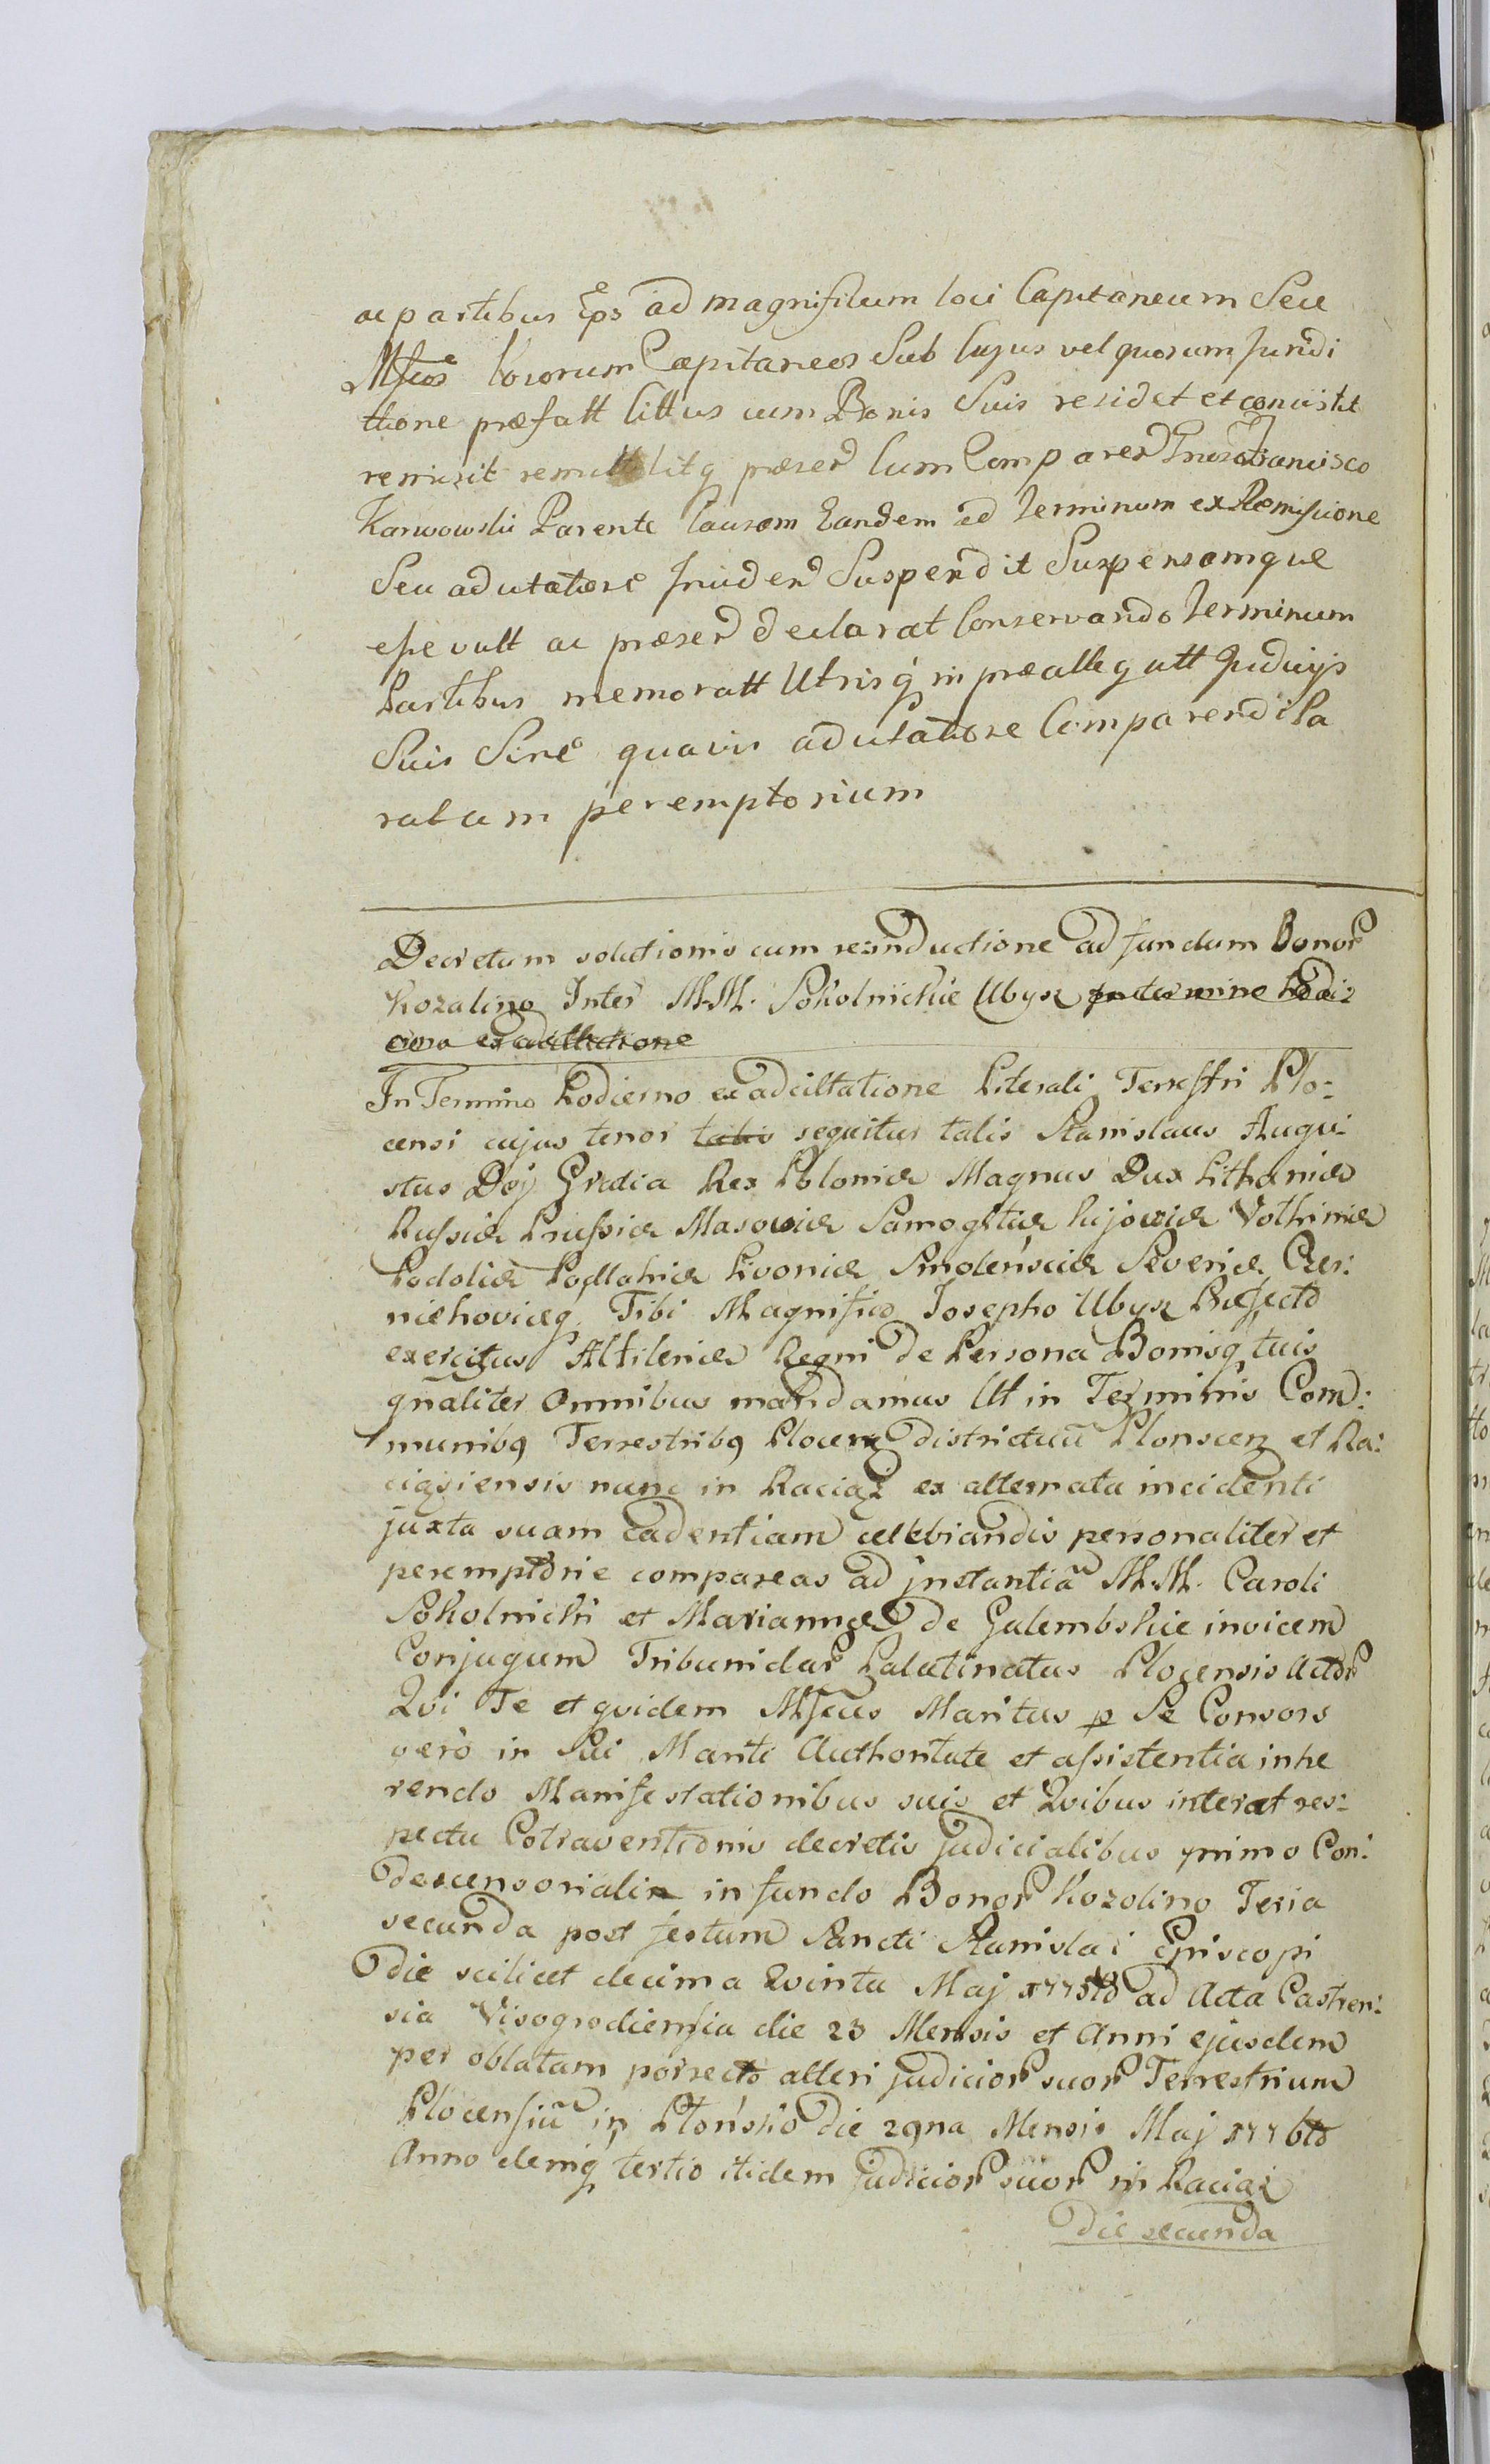 ac partibus Eps ad magnificum loci Capitaneum Seu
Mfcos locorum Capitaneos Sub Cujus vel quorum Jurisdi
ctione præfatt Citt us cum Bonis Suis residet et consistit
remisit remittitq præsen Cum Comparen Francisco
Karwowski Parente Causam Eandem ad Terminum ex Remissione
Seu adcitatione Inciden Suspendit Suspensamque
esse vult ac præsen declarat Conservando Terminum
Partibus memoratt Utrisq in præallegatt Judicijs
Suis Sine quavis adcitatione Comparendi Pa
ratum peremptorium
Decretum solutionis cum reinductione ad fundum Bonor
Kozalino Inter M.M. Sokolnickie Ubysz in termino hodi
erno ex adcittatione
In Termino hodierno ex adcittatione Literali Terrestri Plo:
censi cujus tenor talis sequitur talis Stanislaus Augu:
stus Dei Gratia Rex Poloniæ Magnus Dux Lithaniæ
Russiæ Prussiæ Masoviæ Samogitiæ Kijoviæ Volhiniæ
Podoliæ Podlahiæ Livoniæ Smolensciæ Severiæ Czer:
niehoviæq Tibi Magnifico Josepho Ubysz Præfecto
exercitus Altileriæ Regni de Persona Bonisq tuis
gnaliter Omnibus mandamus Ut in Terminis Com:
munibq Terrestribq Plocen districtuu Plonscen et Ra:
ciąsiensis nunc in Raciąż ex alternata incidenti
juxta suam cadentiam celebrandis personaliter et
peremptorie compareas ad jnstantiã M.M. Caroli
Sokolnicki et Mariannæ de Galembskie invicem
Conjugum Tribunidar Palatinatus Plocensis Actor
Qvi Te et qvidem Mfcus Maritus p Se Consors
vero in Sui Mariti Authoritate et assistentia inhe
rendo Manifestationibus suis et Qvibus interat res:
pectu Cotraventionis decretis judicialibus primo Con:
descensoriali in fundo Bonor Kozolino Feria
secunda post festum Sancti Stanislai Episcopi
die scilicet decima Qvinta Maj 1775to ad Acta Castren:
sia Visogrodiensia die 23 Mensis et Anni ejusdem
per oblatam porrecto alteri judicior suor Terrestrium
Plocensiũ in Płońsko die 29na Mensis Maj 1776to
Anno deniq tertio itidem judicior suor in Raciąż
die secunda